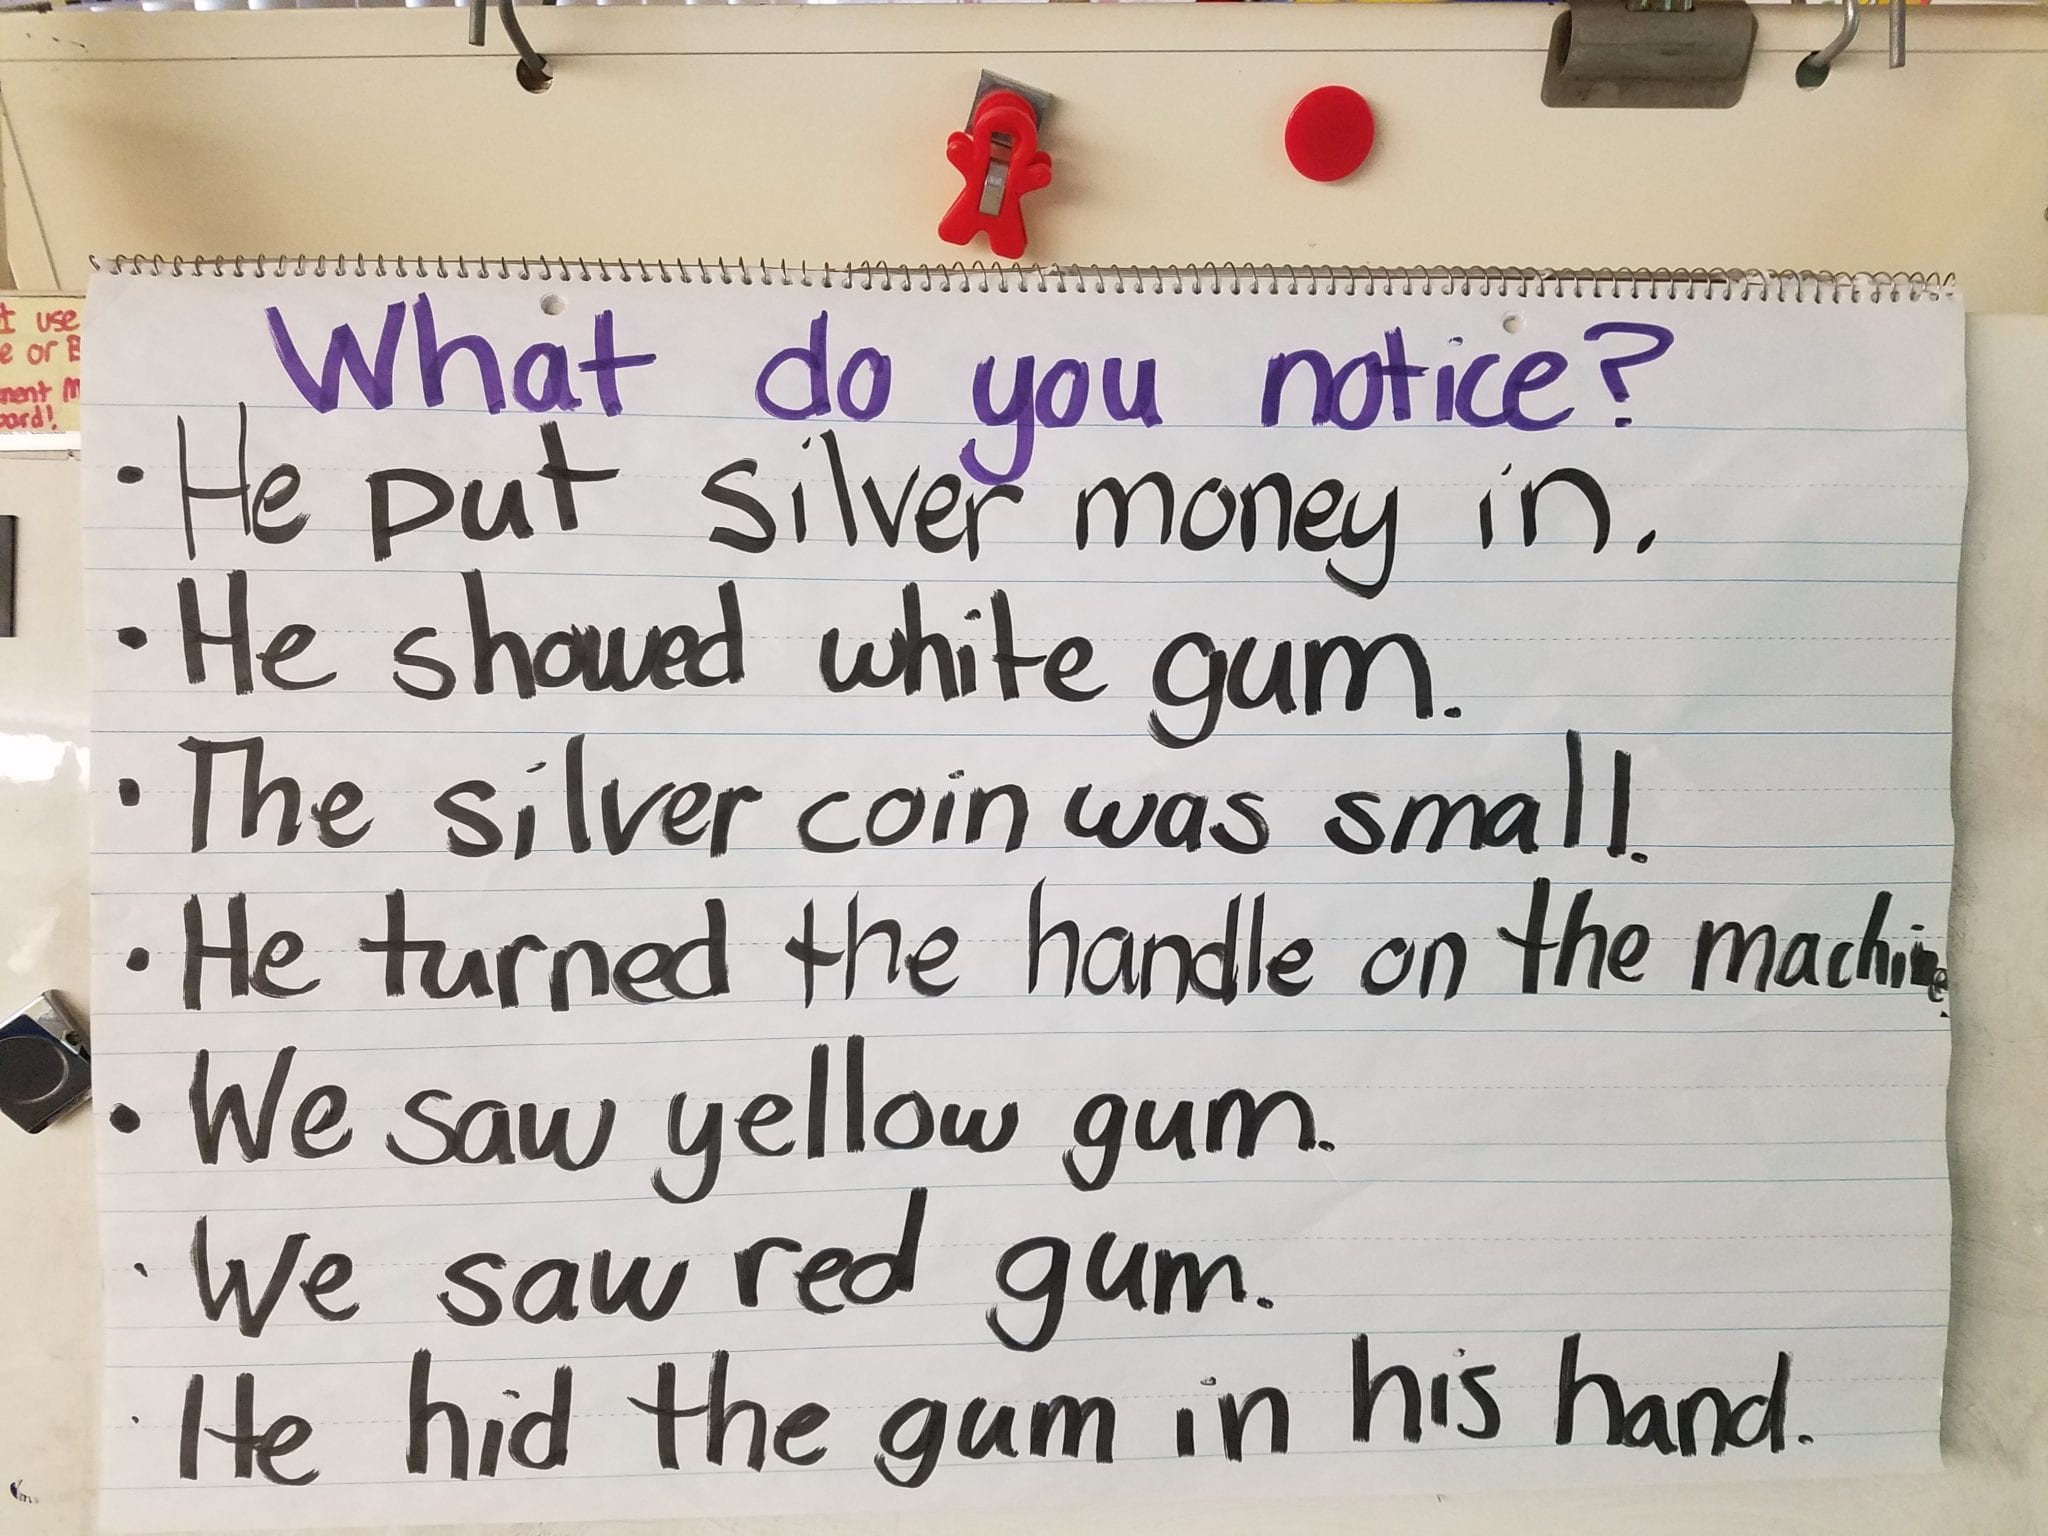 What do you notice?
• He put silver money in.
• He showed white gum.
• The silver coin was small.
• He turned the handle on the machine.
• We saw yellow gum.
• We saw red gum.
• He hid the gum in his hand.
use
or
board!